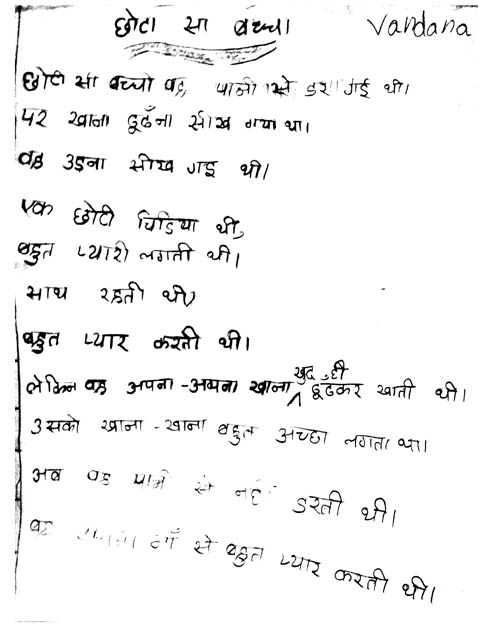 छोटा सा बच्चा Vandana
छोटी सी बच्ची वह पानी से डरा गई थी।
पर खाना ढूढँना सीख गया था।
वह उड़ना सीख गई थी।
एक छोटी चिडिया थी,
बहुत प्यारी लगती थी।
साथ रहती थी,
बहुत प्यार करती थी।
लेकिन वह अपना-अपना खाना खुद ही ढूँढकर खाती थी।
उसको खाना-खाना बहुत अच्छा लगता था।
अब वह पानी से नही डरती थी।
वह माँ से बहुत प्यार करती थी।